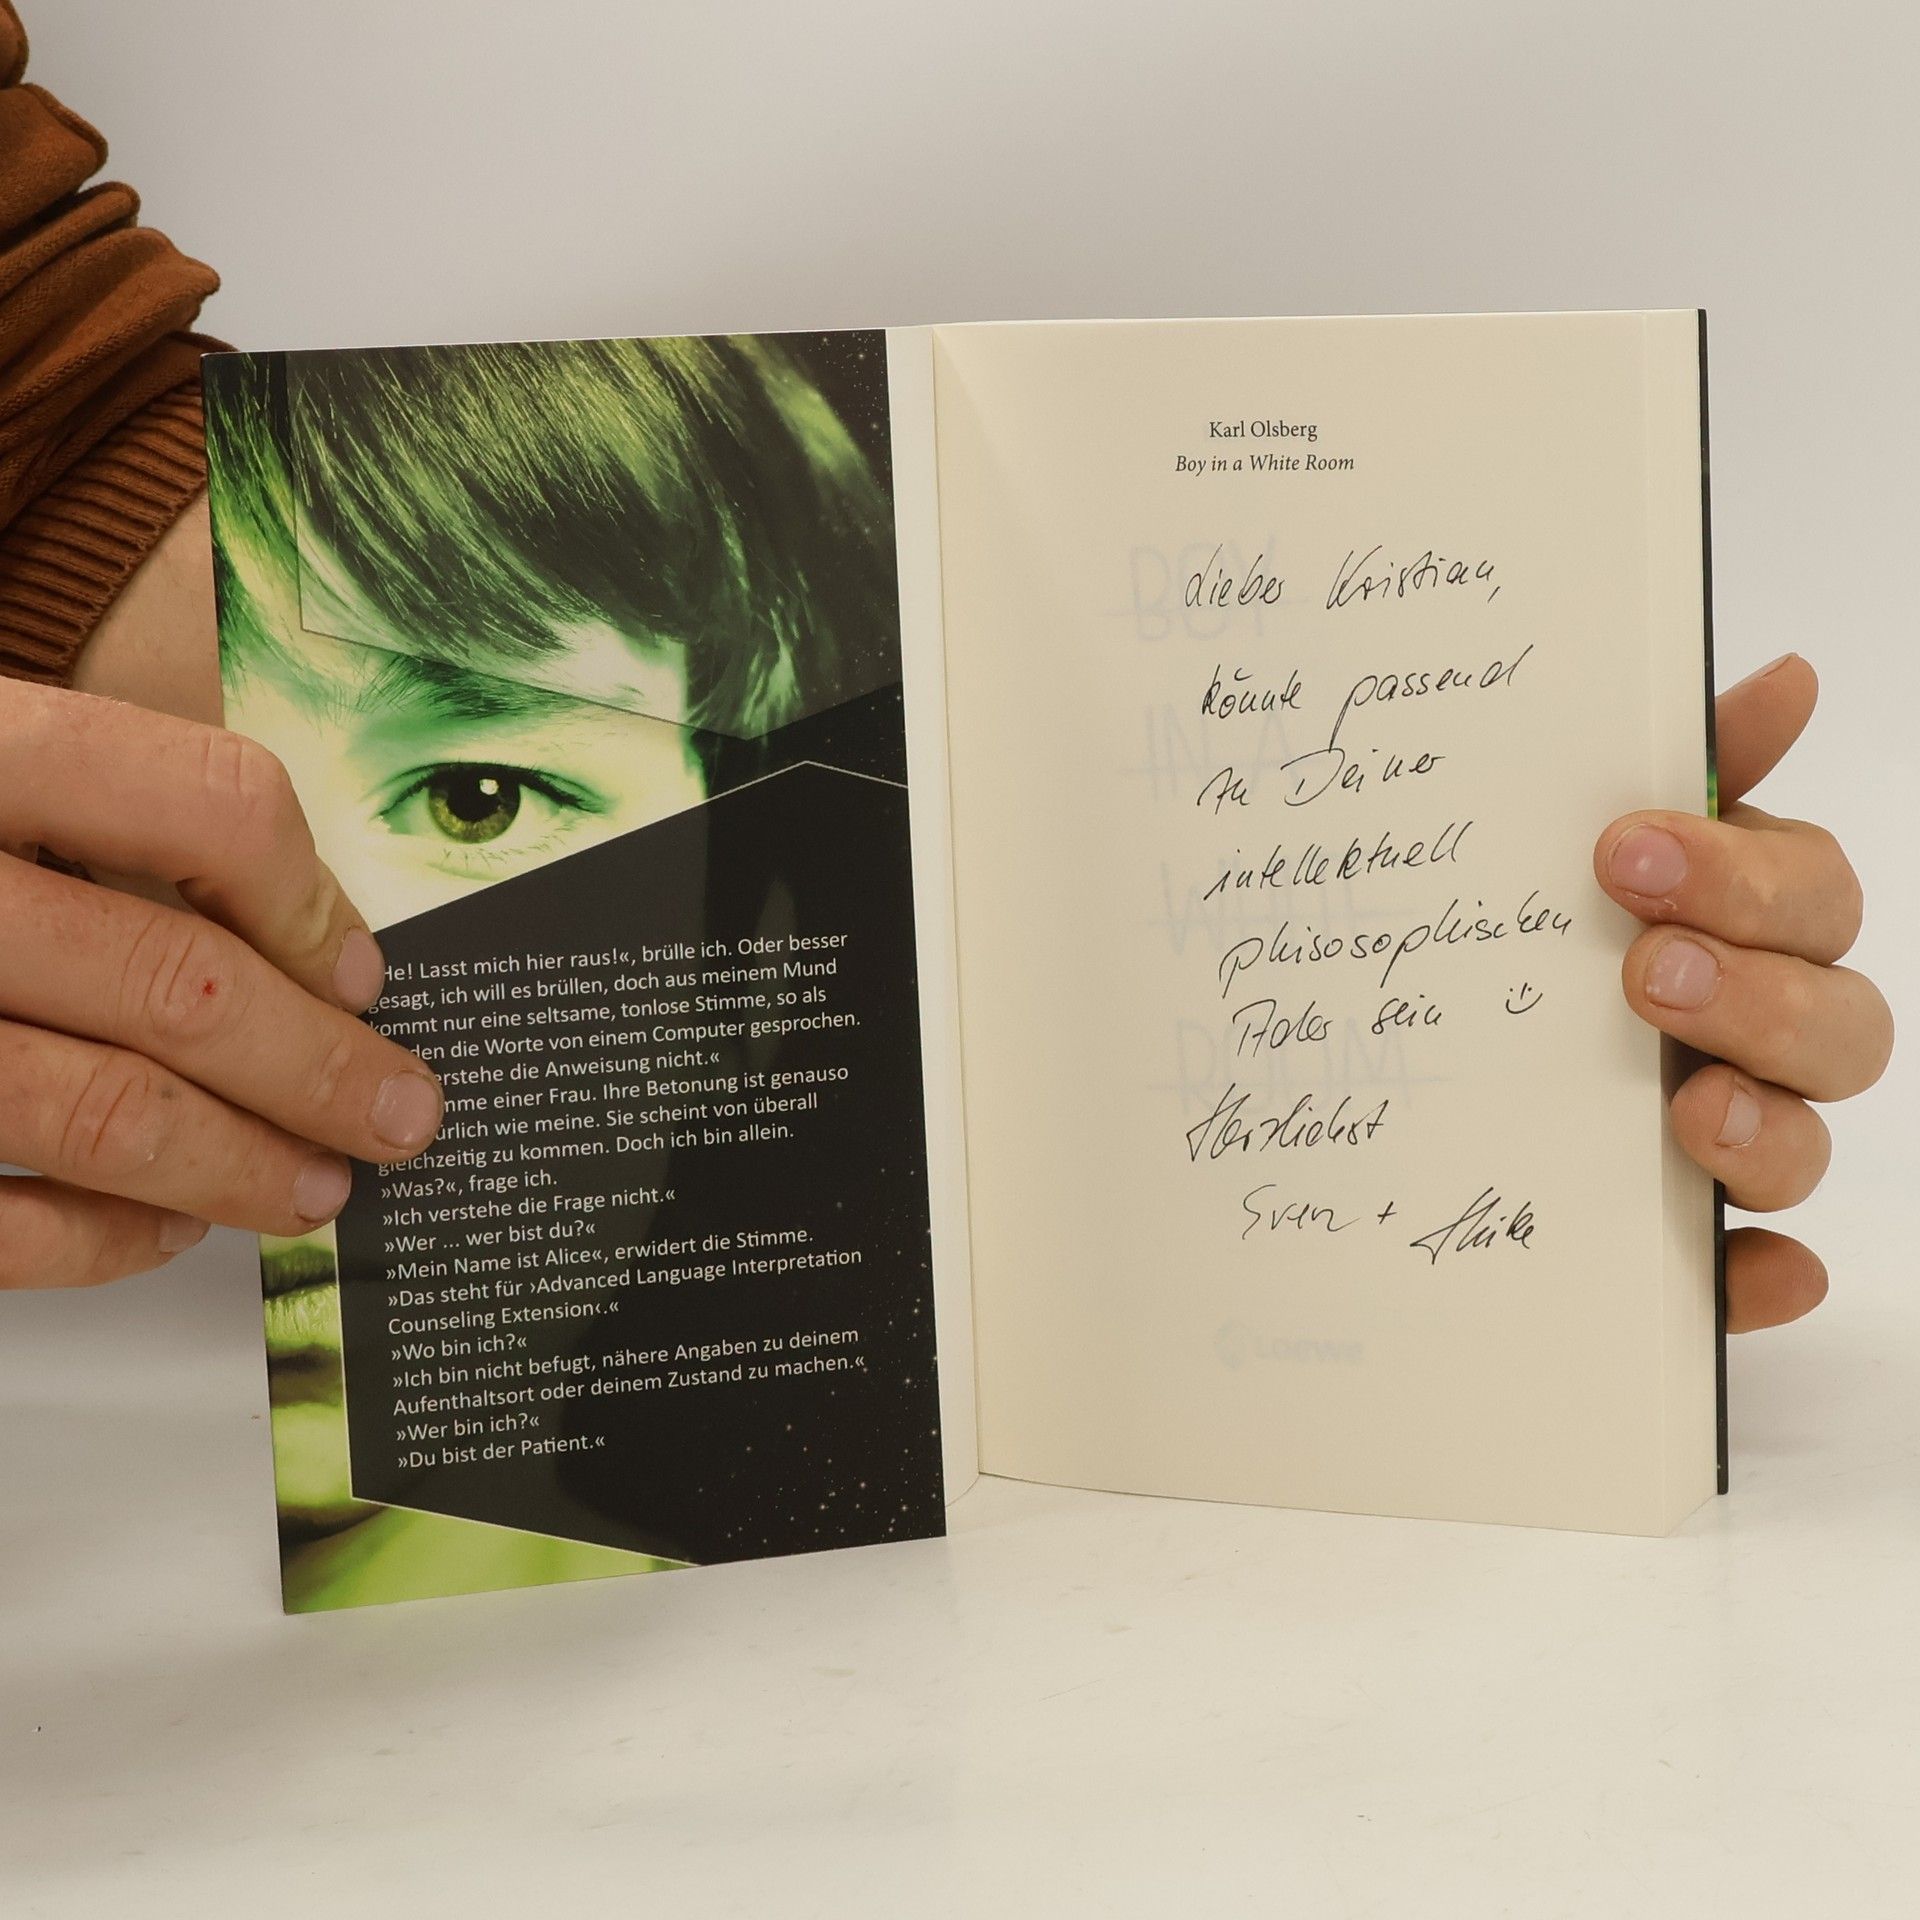 He! Lasst mich hier raus!«, brülle ich. Oder besser
gesagt, ich will es brüllen, doch aus meinem Mund
kommt nur eine seltsame, tonlose Stimme, so als
den die Worte von einem Computer gesprochen.
erstehe die Anweisung nicht.«
mme einer Frau. Ihre Betonung ist genauso
ürlich wie meine. Sie scheint von überall
gleichzeitig zu kommen. Doch ich bin allein.
»Was?«, frage ich.
»Ich verstehe die Frage nicht.«
»Wer ... wer bist du?«
»Mein Name ist Alice«, erwidert die Stimme.
»Das steht für ›Advanced Language Interpretation
Counseling Extension‹.«
»Wo bin ich?«
»Ich bin nicht befugt, nähere Angaben zu deinem
Aufenthaltsort oder deinem Zustand zu machen.«
»Wer bin ich?«
»Du bist der Patient.«
Karl Olsberg
Boy in a White Room
Lieber Kristian,
könnte passend
zu Deiner
intellektuell
phisosophischen
Ader sein
Herzlichst
Sven +